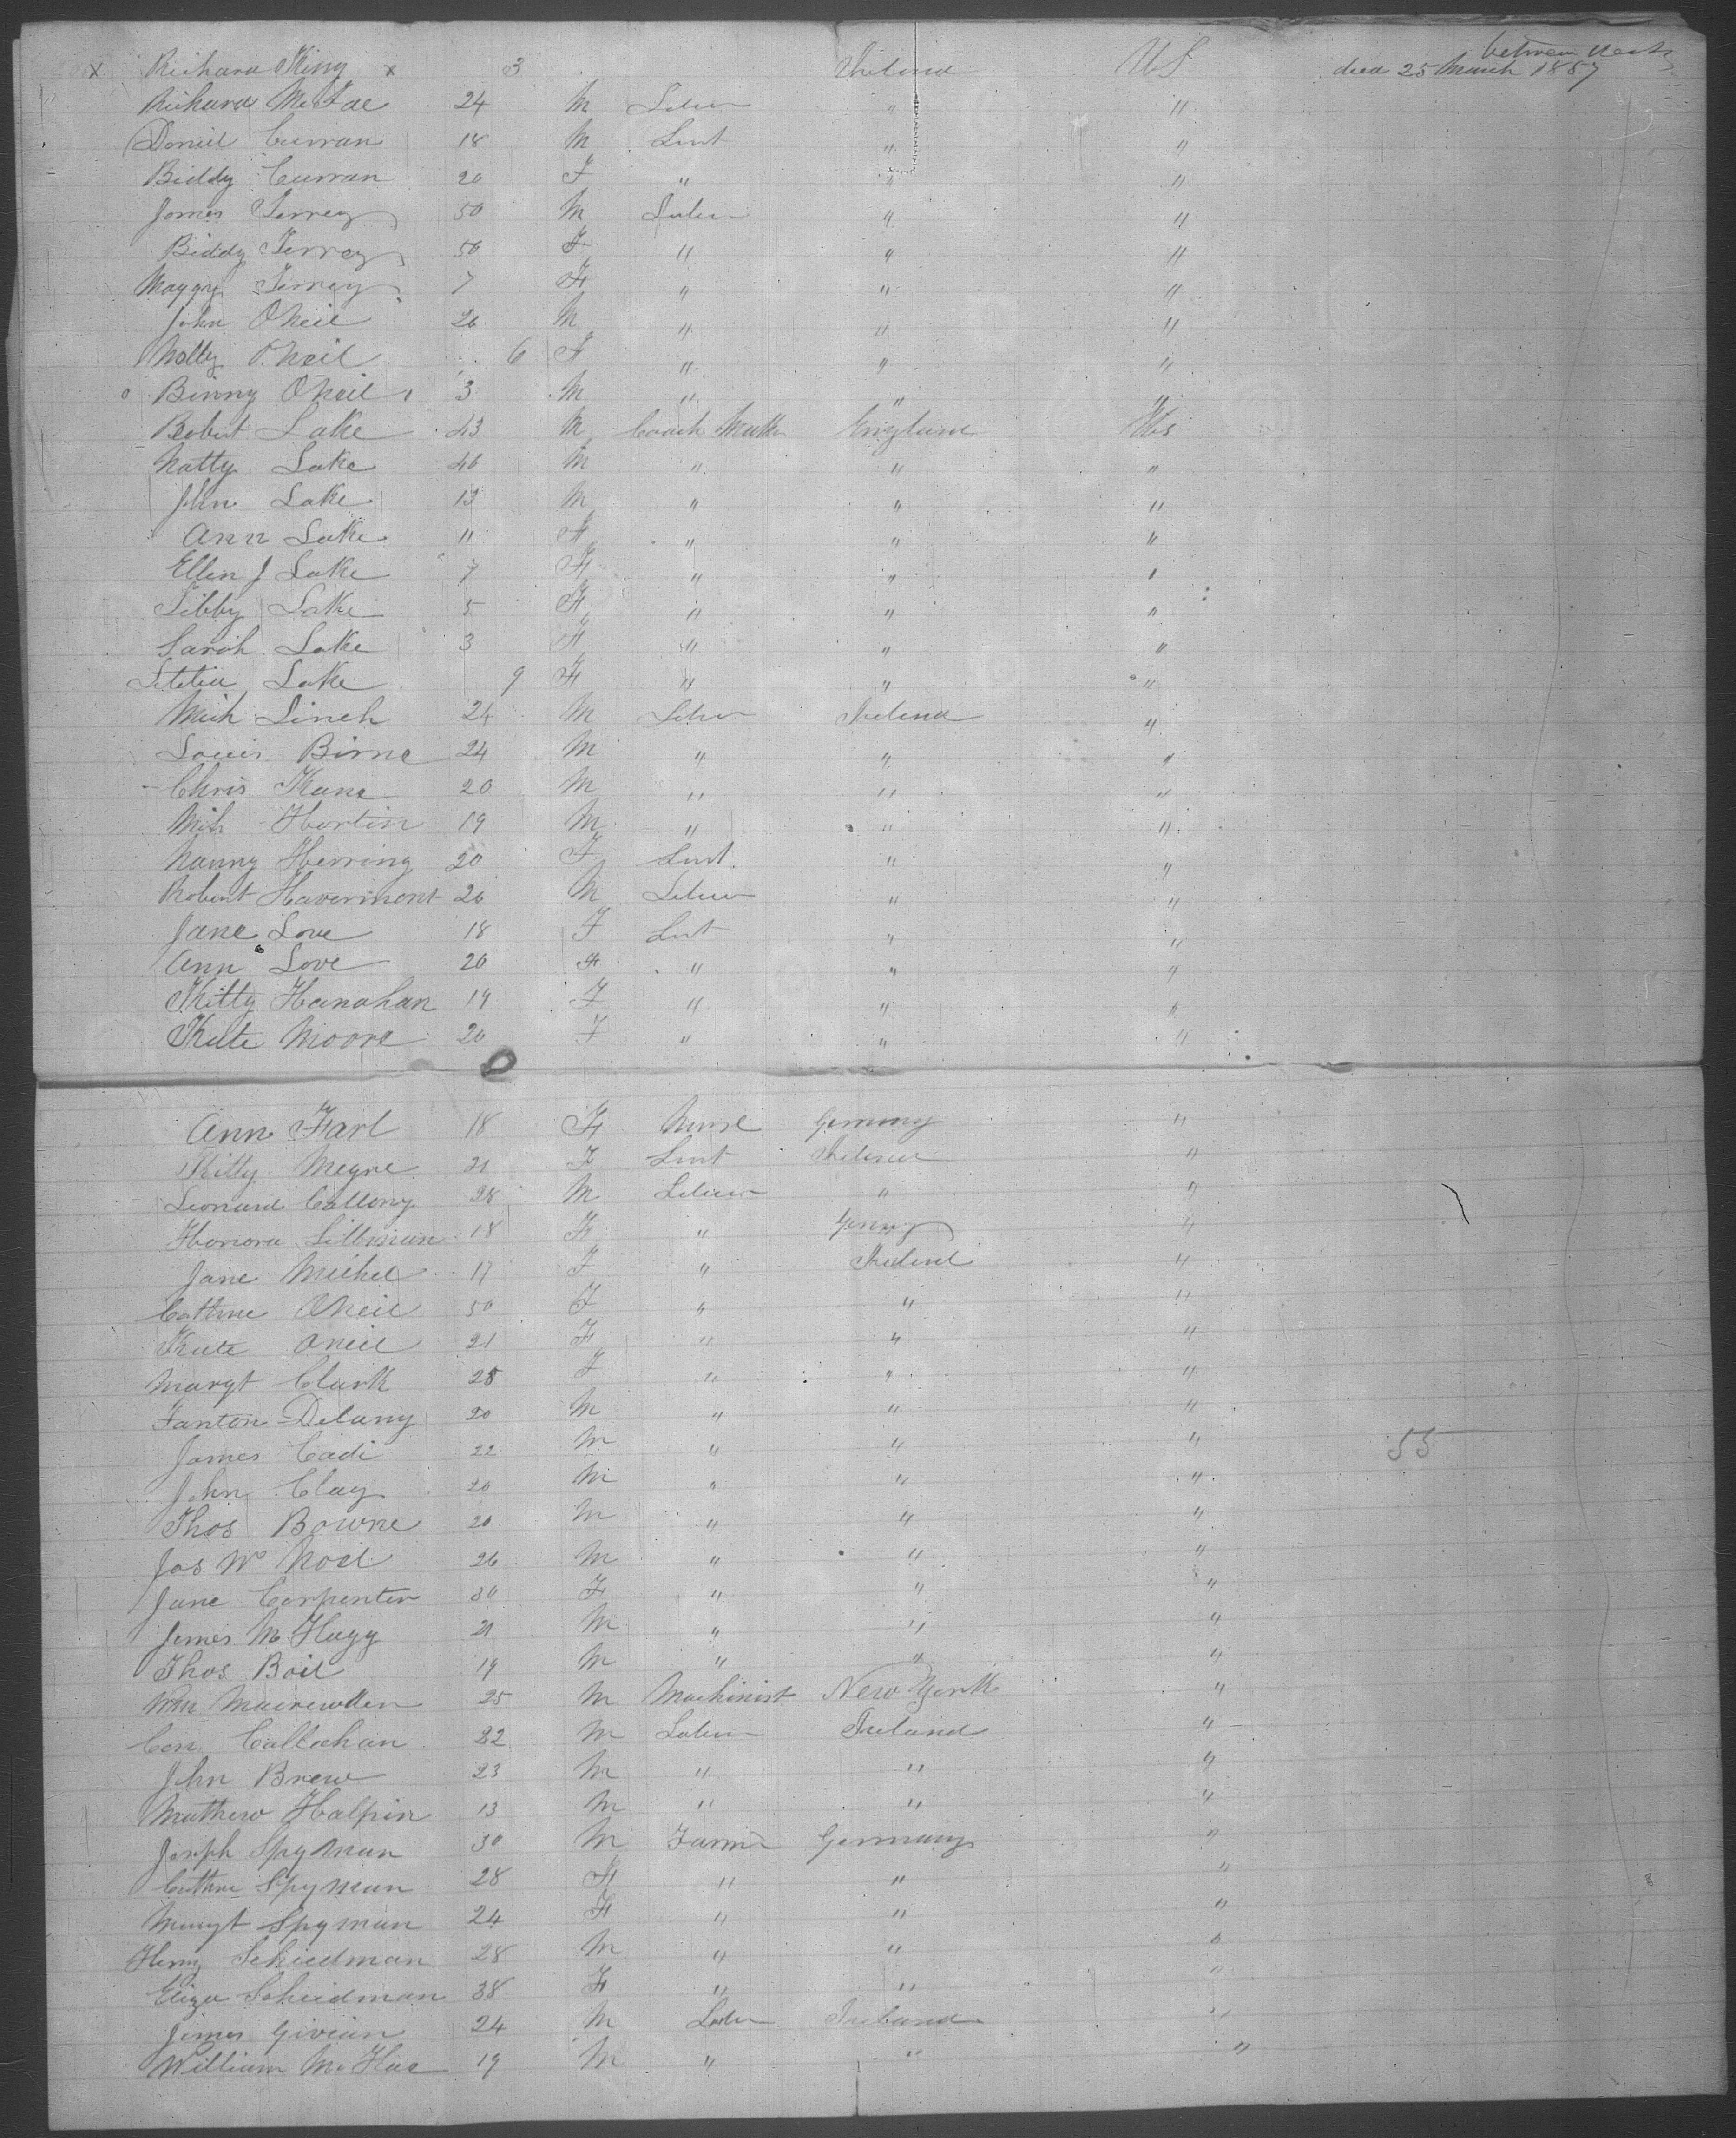 between decks
x Richard King x 3 Ireland US died 25 March 1857
Richard 24 M Labur " "
Daniel Curran 18 M Srvt " "
Biddy Curran 20 F " " "
James Terrey 50 M Labur " "
Biddy Terrey 50 F " " "
Maggy Terrey 7 F " " "
John ONeil 26 M " " "
Molly ONeil 6 F " " "
Binny ONeil 3 M " " "
Robert Lake 43 M Coach England US
Natty Lake 46 M " " "
John Lake 13 M " " "
Ann Lake 11 F " " "
Ellen J Lake 7 F " " "
Libby Lake 5 F " " "
Sarah Lake 3 F " " "
Letitia Lake 9 F " " "
Mich Linch 24 M Labur Ireland "
Louis Birne 24 M " " "
Chris Kane 20 M " " "
Mich Hartin 19 M " " "
Nanny Herring 20 F Srvt " "
Robert Havermont 26 M Labur " "
Jane Love 18 F Srvt " "
Ann Love 20 F " " "
Kitty Hanahan 19 F " " "
Kate Moore 20 F " " "
Ann Farl 18 F Nurse Germany "
Kitty Megne 21 F Srvt Ireland "
Leonard Callony 28 M Labur " "
Honora Lillman 18 F " Germany "
Jane Michel 17 F " Ireland "
Cathrine ONeil 50 F " " "
Kate ONeil 21 F " " "
Margt Clark 28 F " " "
Fanton Delany 20 M " " "
James Cadi 22 M " " " 55
John Clay 20 M " " "
Thos Bowne 20 M " " "
Jas Mc Noel 26 M " " "
Jane Carpenter 30 F " " "
James Mc Hugg 21 M " " "
Thos Boil 19 M " " "
Wm 25 M Machinist New York "
Con Callachan 22 M Labur Ireland "
John Brew 23 M " " "
Mathew Halpin 13 M " " "
Joseph Spyman 30 M Farmer Germany "
Cathrine Spyman 28 F " " "
Margt Spyman 24 F " " "
Henry Schiedman 28 M " " "
Eliza Schiedman 38 F " " "
James Givian 24 M Labur Ireland "
William Mc Hae 19 M " " "